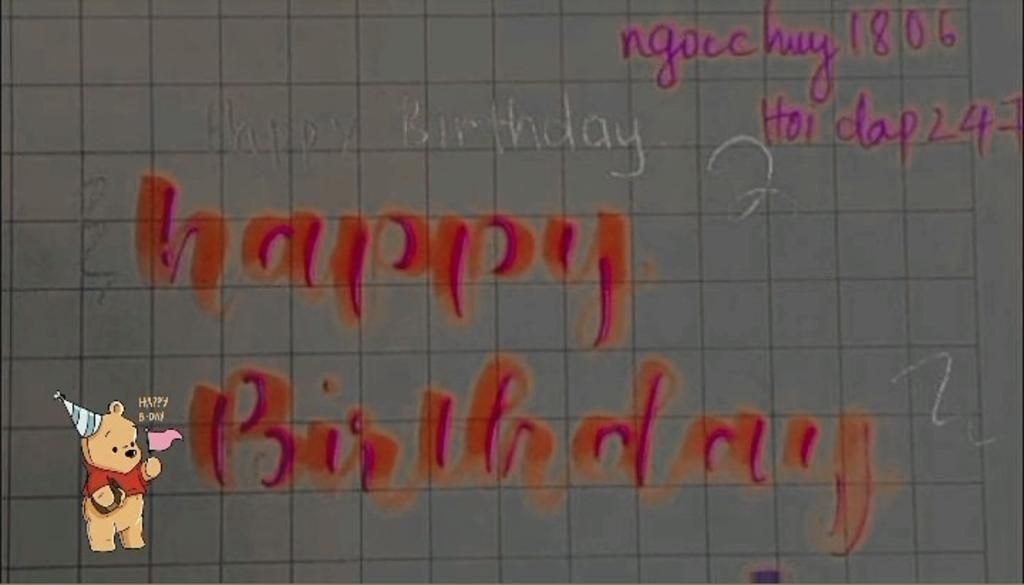 ngocchuy1806
Hoi dap247
Happy Birthday
happy
Birthday
HAPPY
B-DAY